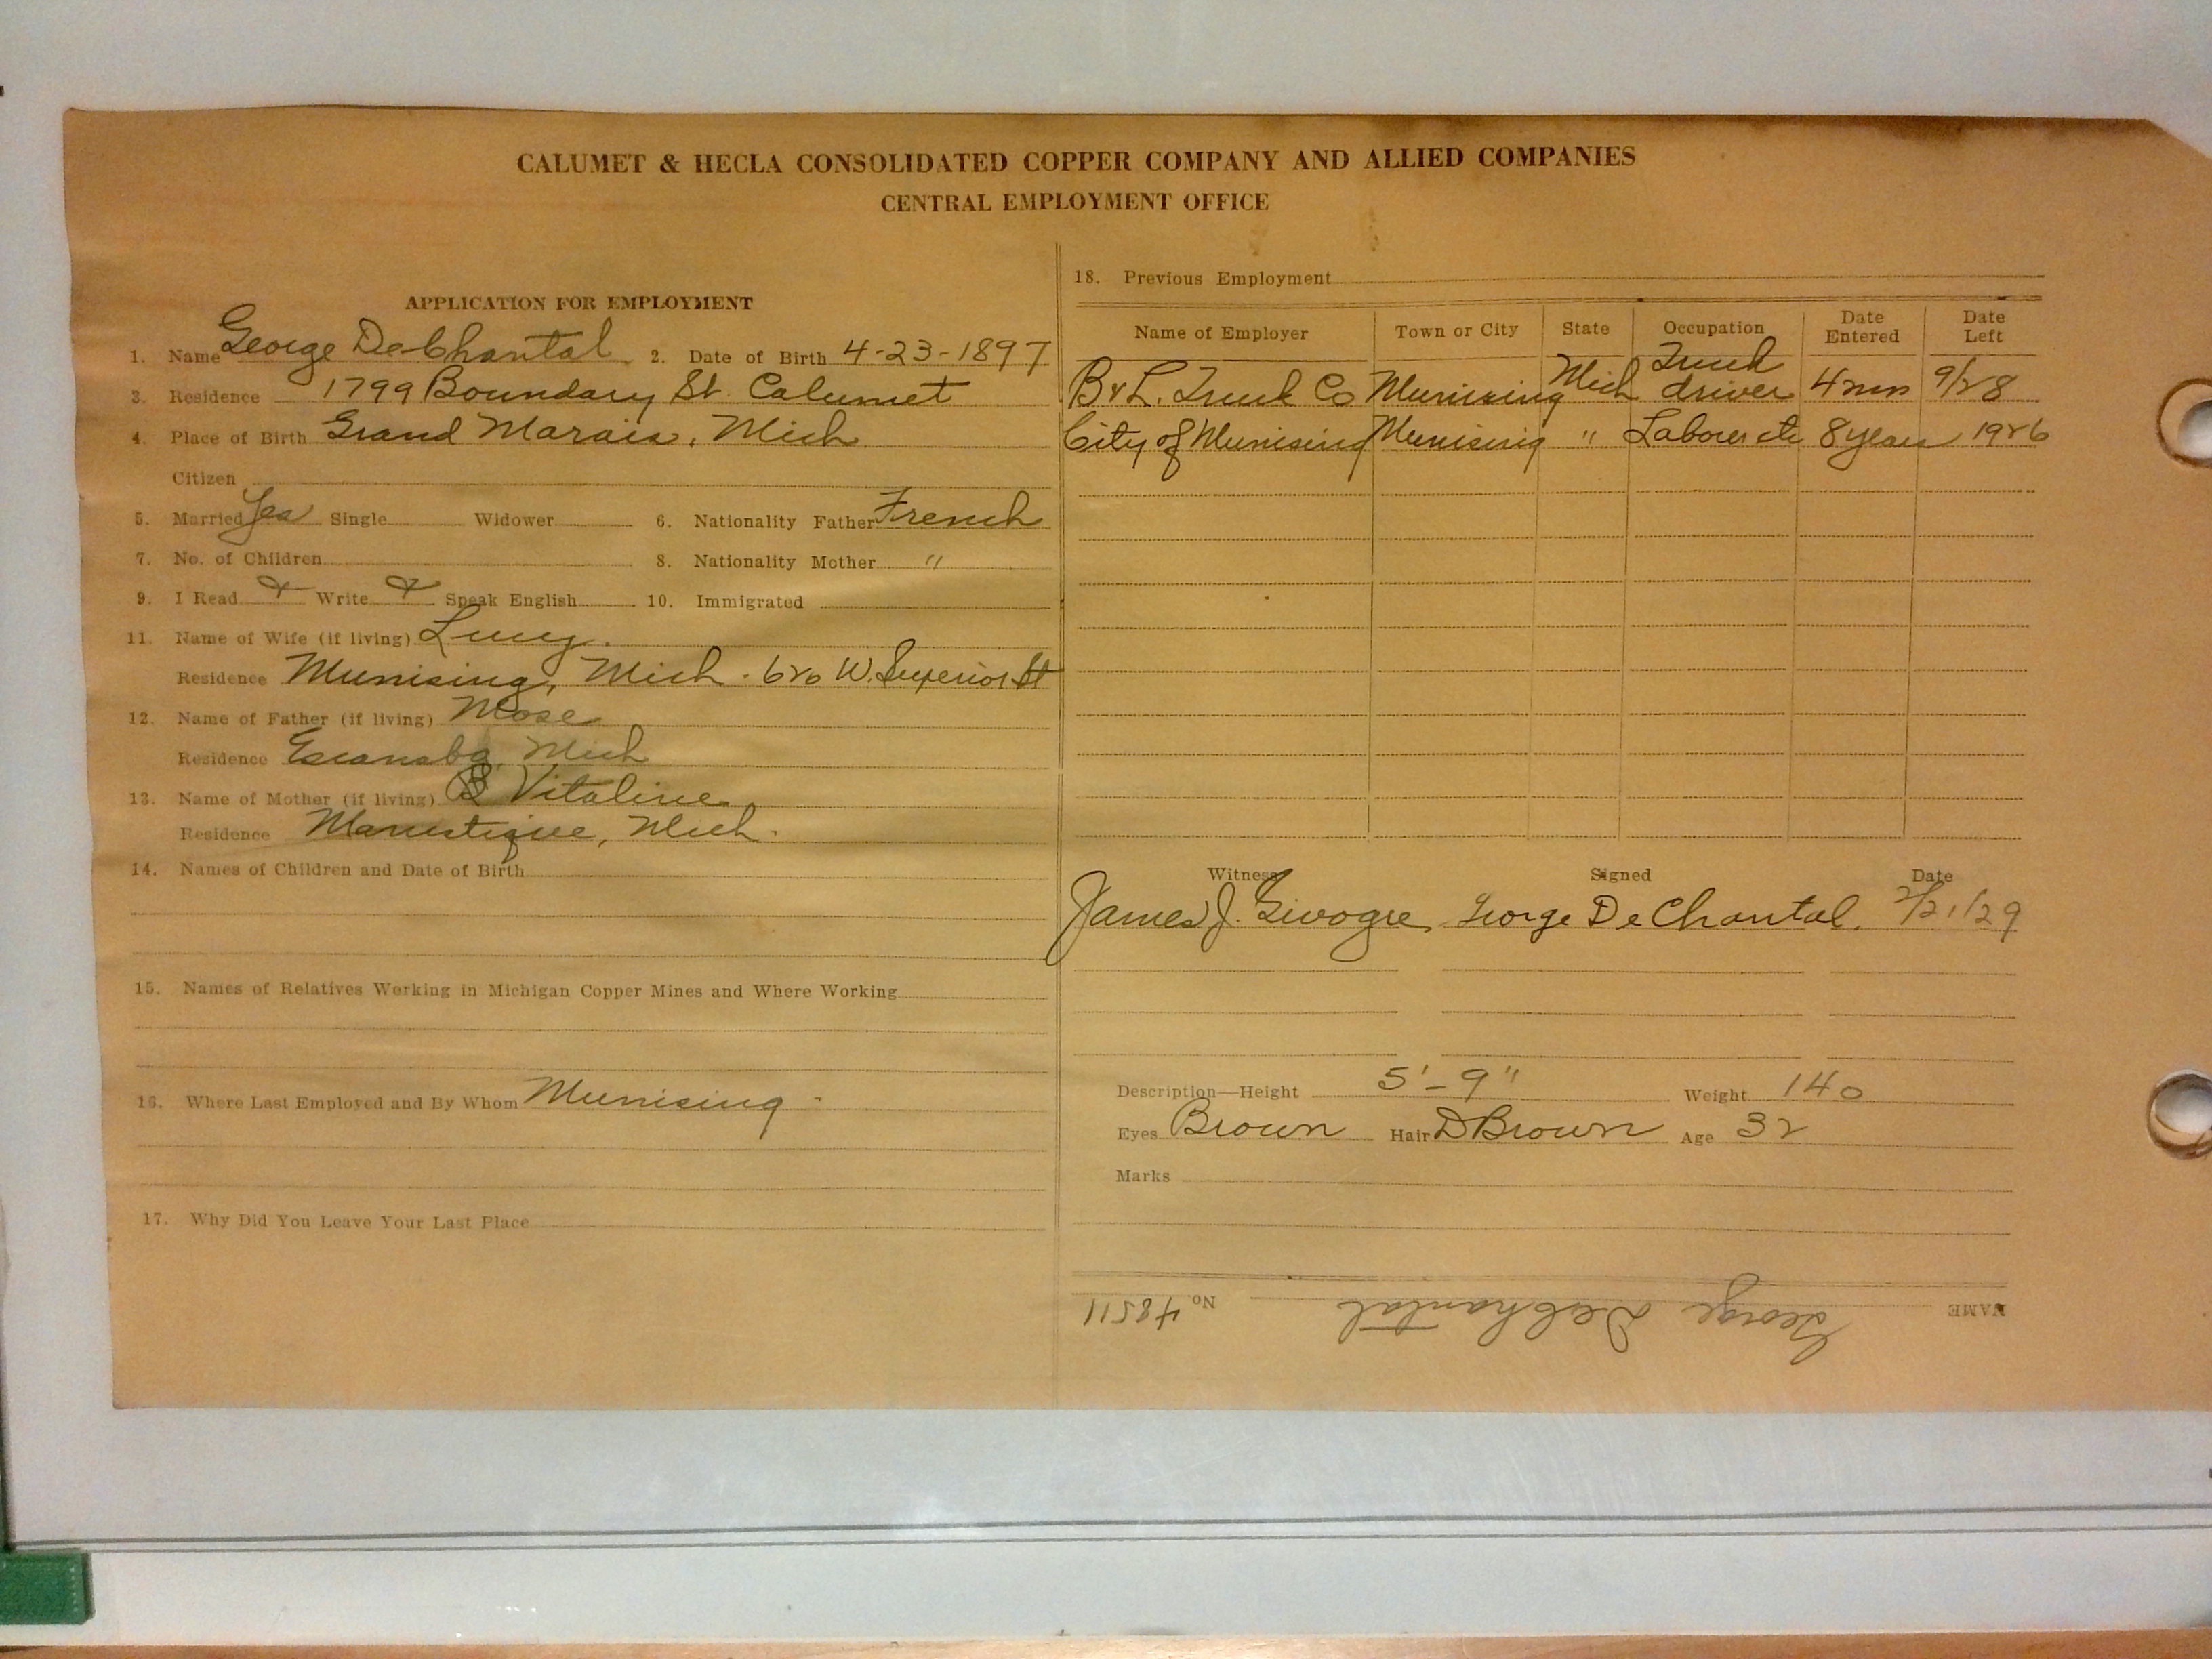 CALUMET & HECLA CONSOLIDATED COPPER COMPANY AND ALLIED COMPANIES
CENTRAL EMPLOYMENT OFFICE
APPLICATION FOR EMPLOYMENT
1. Name George DeChantal 2. Date of Birth 4-23-1897
3. Residence 1799 Boundary St. Calumet
4. Place of Birth Grand Marais, Mich
Citizen
5. Married Yes Single Widower 6. Nationality Father French
7. No. of Children 8. Nationality Mother "
9. I Read Write Speak English 10. Immigrated
11. Name of Wife (if living) Lucy.
Residence Munising, Mich. 620 W. Superior St
12. Name of Father (if living) Mose
Residence Escanaba, Mich
13. Name of Mother (if living) Vitaline
Residence Manistique, Mich.
14. Names of Children and Date of Birth
15. Names of Relatives Working in Michigan Copper Mines and Where Working
16. Where Last Employed and By Whom Munising
17. Why Did You Leave Your Last Place
18. Previous Employment
Name of Employer Town or City State Occupation Date Entered Date Left
B & L. Truck Co Munising Mich Truck driver 4 mos 9/28
City of Munising Munising " Laborer etc 8 years 1926
Witness Signed Date
James J. George DeChantal. 2/21/29
Description—Height 5'-9" Weight 140
Eyes Brown Hair D Brown Age 32
Marks
NAME George DeChantal No. 48511